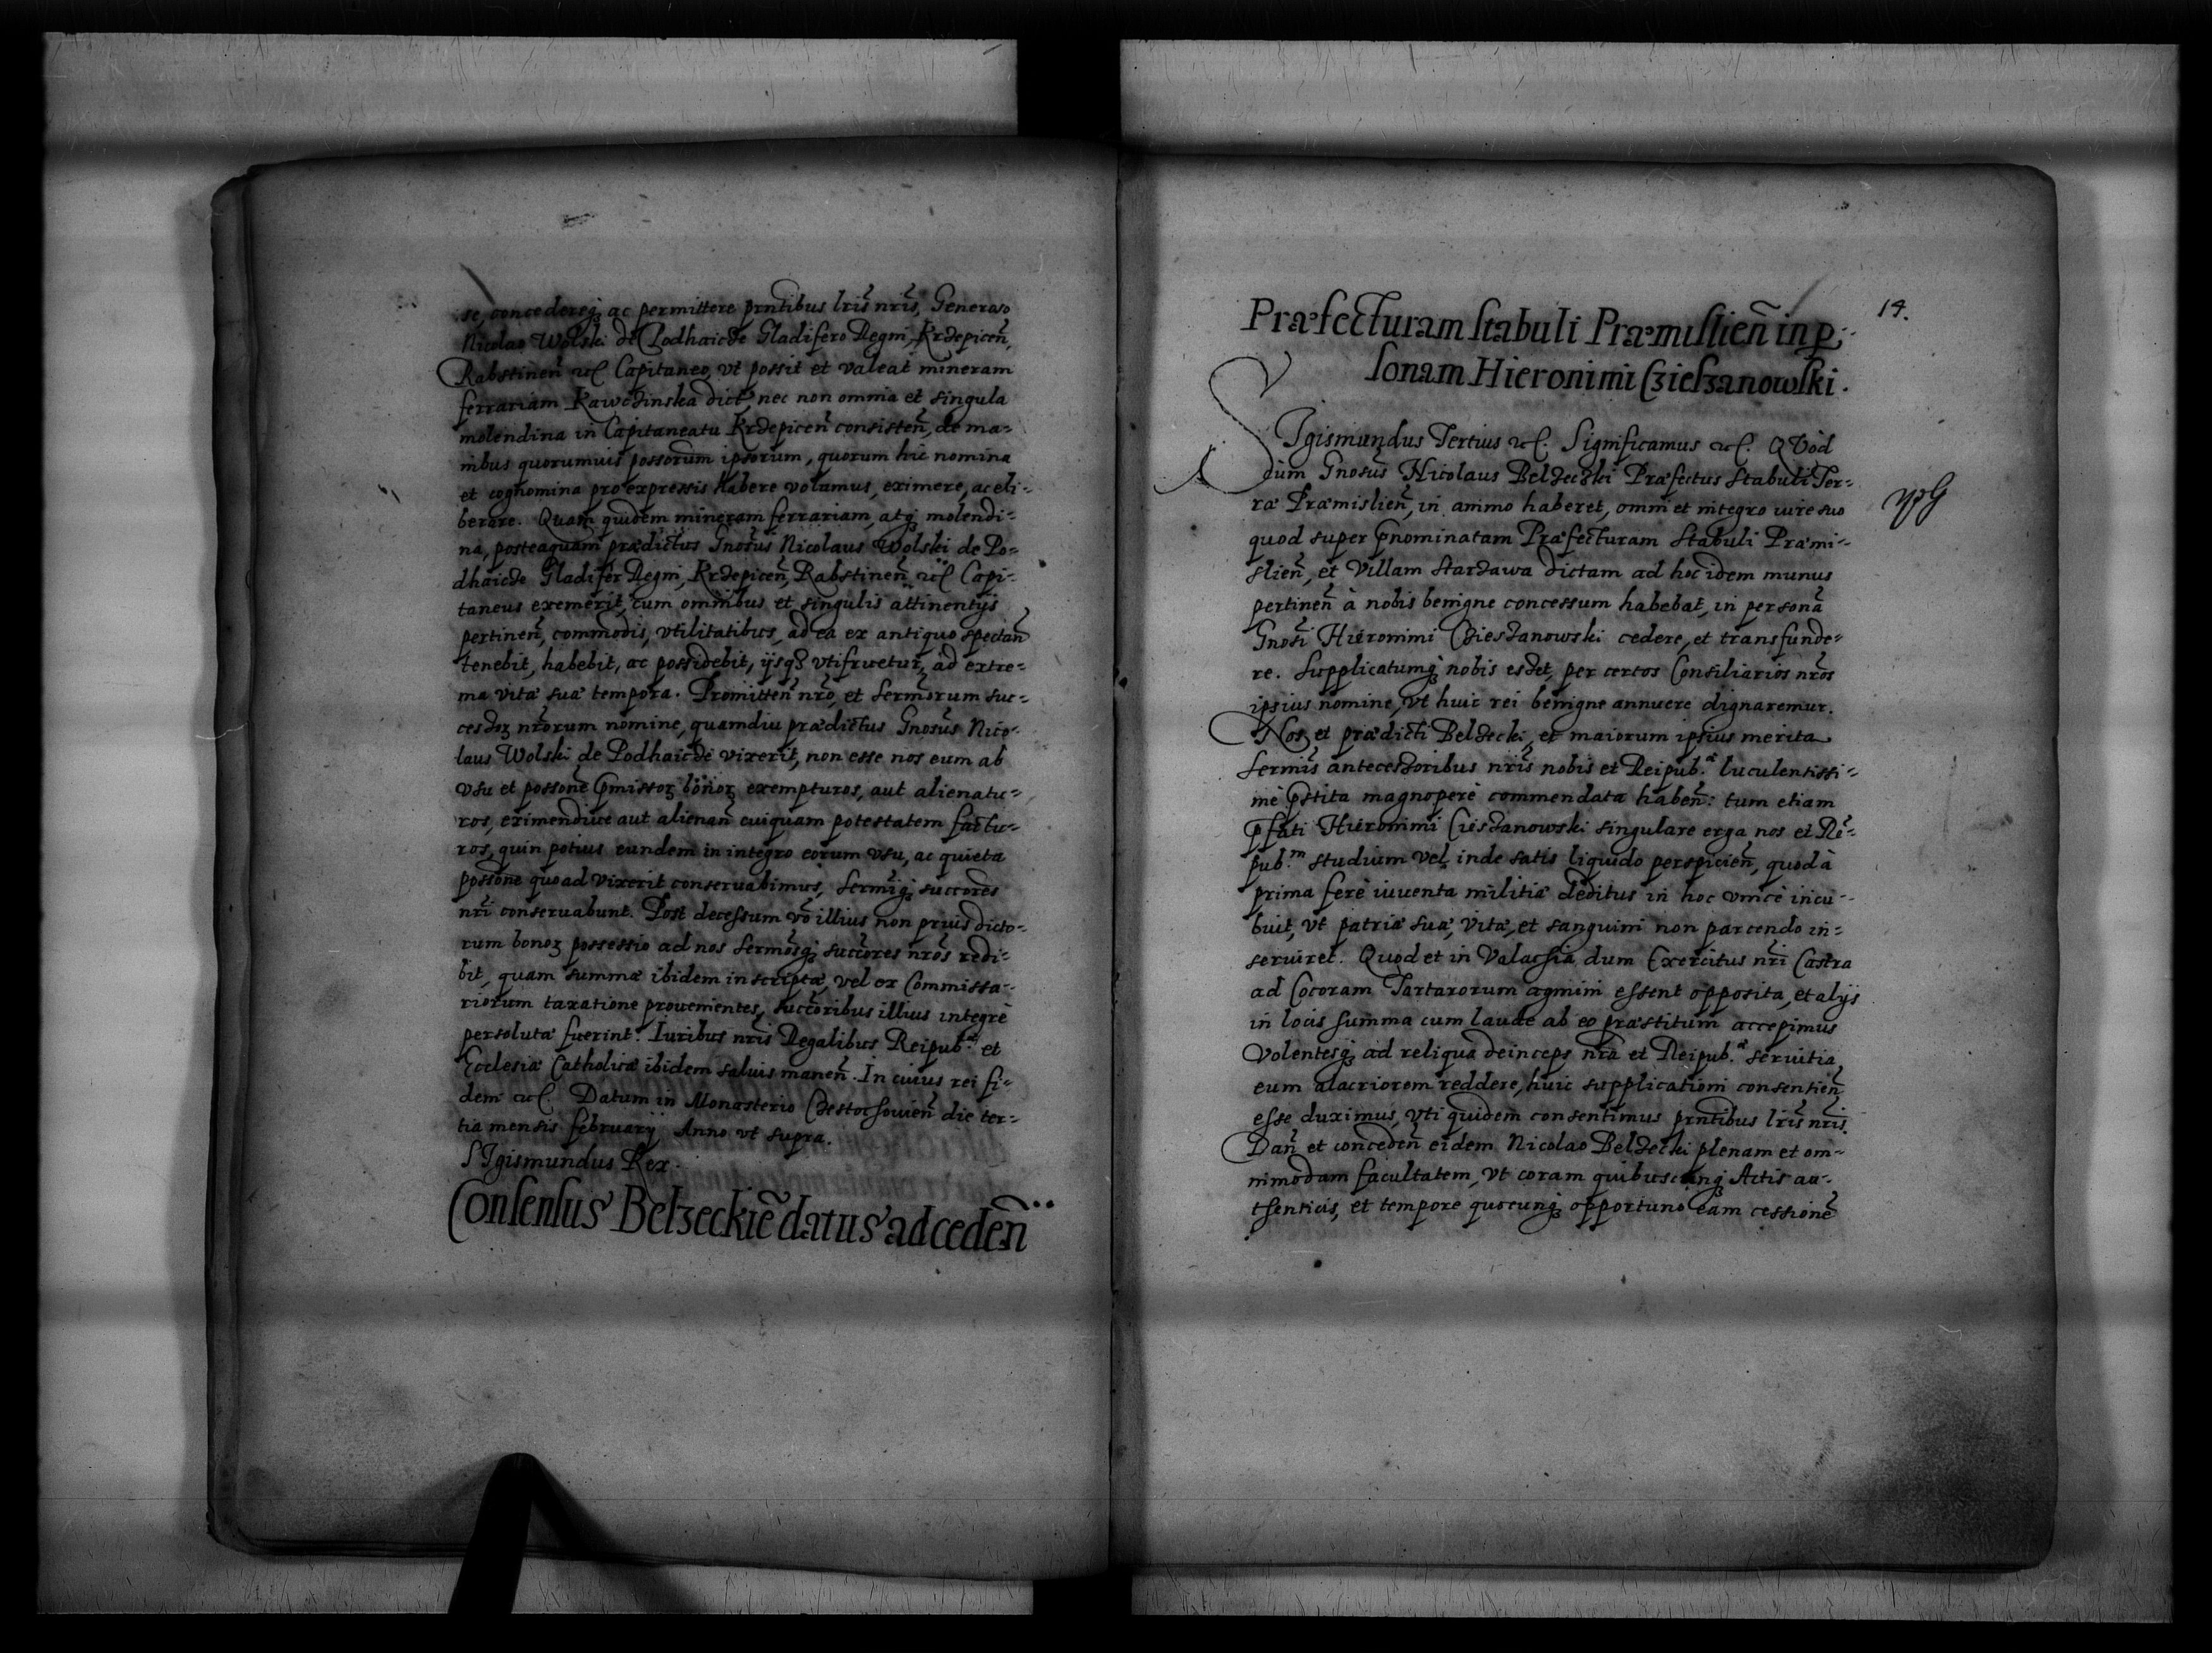 se, concedereq₃ ac permittere prñtibus lris̃ nris̃, Generoso
Nicolao Wolski de Podhaicze Gladifero Regni, Krzepiceñ,
Rabstineñ etc. Capitaneo, vt possit et valeat mineram
ferrariam Kawczinska dict̃, nec non omnia et singula
molendina in Capitaneatu Krzepiceñ consisteñ, de ma-
nibus quorumuis possorum ipsorum, quorum hic nomina
et cognomina pro expressis habere volumus, eximere, ac eli-
berare. Quam quidem mineram ferrariam, atq₃ molendi-
na, posteaquam prædictus Gnosus̃ Nicolaus Wolski de Po-
dhaicze Gladifer Regni, Krzepiceñ, Rabstineñ, etc. Capi-
taneus exemerit, cum omnibus et singulis attinentijs
pertineñ, commodis, vtilitatibus, ad ea ex antiquo spectañ
tenebit, habebit, ac possidebit, ijsq₃ vtifruetur, ad extre-
ma vitæ suæ tempora. Promitteñ nr̃o, et Sermorum̃ suc-
cessoꝝ nr̃orum nomine, quamdiu prædictus Gnosus̃ Nico-
laus Wolski de Podhaicze vixerit, non esse nos eum ab
vsu et possone p̃missoꝝ bonoꝝ exempturos, aut alienatu-
ros, eximendiue aut alienañ cuiquam potestatem factu-
ros, quin potius eundem in integro eorum vsu, ac quieta
possone quoad vixerit conseruabimus, Sermiq₃ succores
nr̃i conseruabunt. Post decessum võ illius non prius dicto-
rum bonoꝝ possessio ad nos Sermosq₃ succores nr̃os redi-
bit, quam summæ ibidem inscriptæ, vel ex Commissa-
riorum taxatione prouenientes, succoribus illius integrè
persolutæ fuerint. Iuribus nr̃is Regalibus Reipub.æ et
Ecclesiæ Catholicæ ibidem saluis maneñ. In cuius rei fi-
dem etc. Datum in Monasterio Czestochouieñ die ter-
tia mensis februarij Anno vt supra.
SIgismundus Rex.
Consensus Belzeckiẽ datus ad cedeñ
14.
Præfecturam stabuli Præmislieñ in ꝑ-
sonam Hieronimi Czieszanowski.
SIgismundus Tertius etc. Significamus etc. QVòd
cùm Gnosus̃ Nicolaus Belzeczki Præfectus Stabuli Ter-
ræ Præmislieñ, in animo haberet, omni et integro iure suo
quod super p̃nominatam Præfecturam Stabuli Præmi-
slieñ, et Villam Starzawa dictam ad hoc idem munus
pertineñ à nobis benigne concessum habebat, in personã
Gnosi̇̃ Hieronimi Czieszanowski cedere, et transfunde-
re. Supplicatumq₃ nobis esset, per certos Consiliarios nr̃os
ipsius nomine, vt huic rei benigne annuere dignaremur.
Nos et prædicti Belzecki, et maiorum ipsius merita
Sermis̃ antecessoribus nr̃is nobis et Reipub.æ luculentissi-
mè p̃stita magnoperè commendata habeñ: tum etiam
p̃fati Hieronimi Cieszanowski singulare erga nos et Re-
pub.m studium vel inde satis liquido perspicieñ, quod à
prima ferè iuuenta militiæ deditus in hoc vnicè incu-
buit, vt patriæ suæ, vitæ, et sanguini non parcendo in-
seruiret. Quod et in Valachia dum Exercitus nr̃i Castra
ad Cocoram Tartarorum agmini essent opposita, et alijs
in locis summa cum laude ab eo præstitum accepimus
Volentesq₃ ad reliqua deinceps nr̃a et Reipub.æ seruitia
eum alacriorem reddere, huic supplicationi consentieñ
esse duximus, vti quidem consentimus prñtibus lris̃ nr̃is.
Dañ et concedeñ eidem Nicolao Belzecki plenam et om-
nimodam facultatem, vt coram quibuscunq₃ Actis au-
thenticis, et tempore quocunq₃ opportuno eam cessionẽ